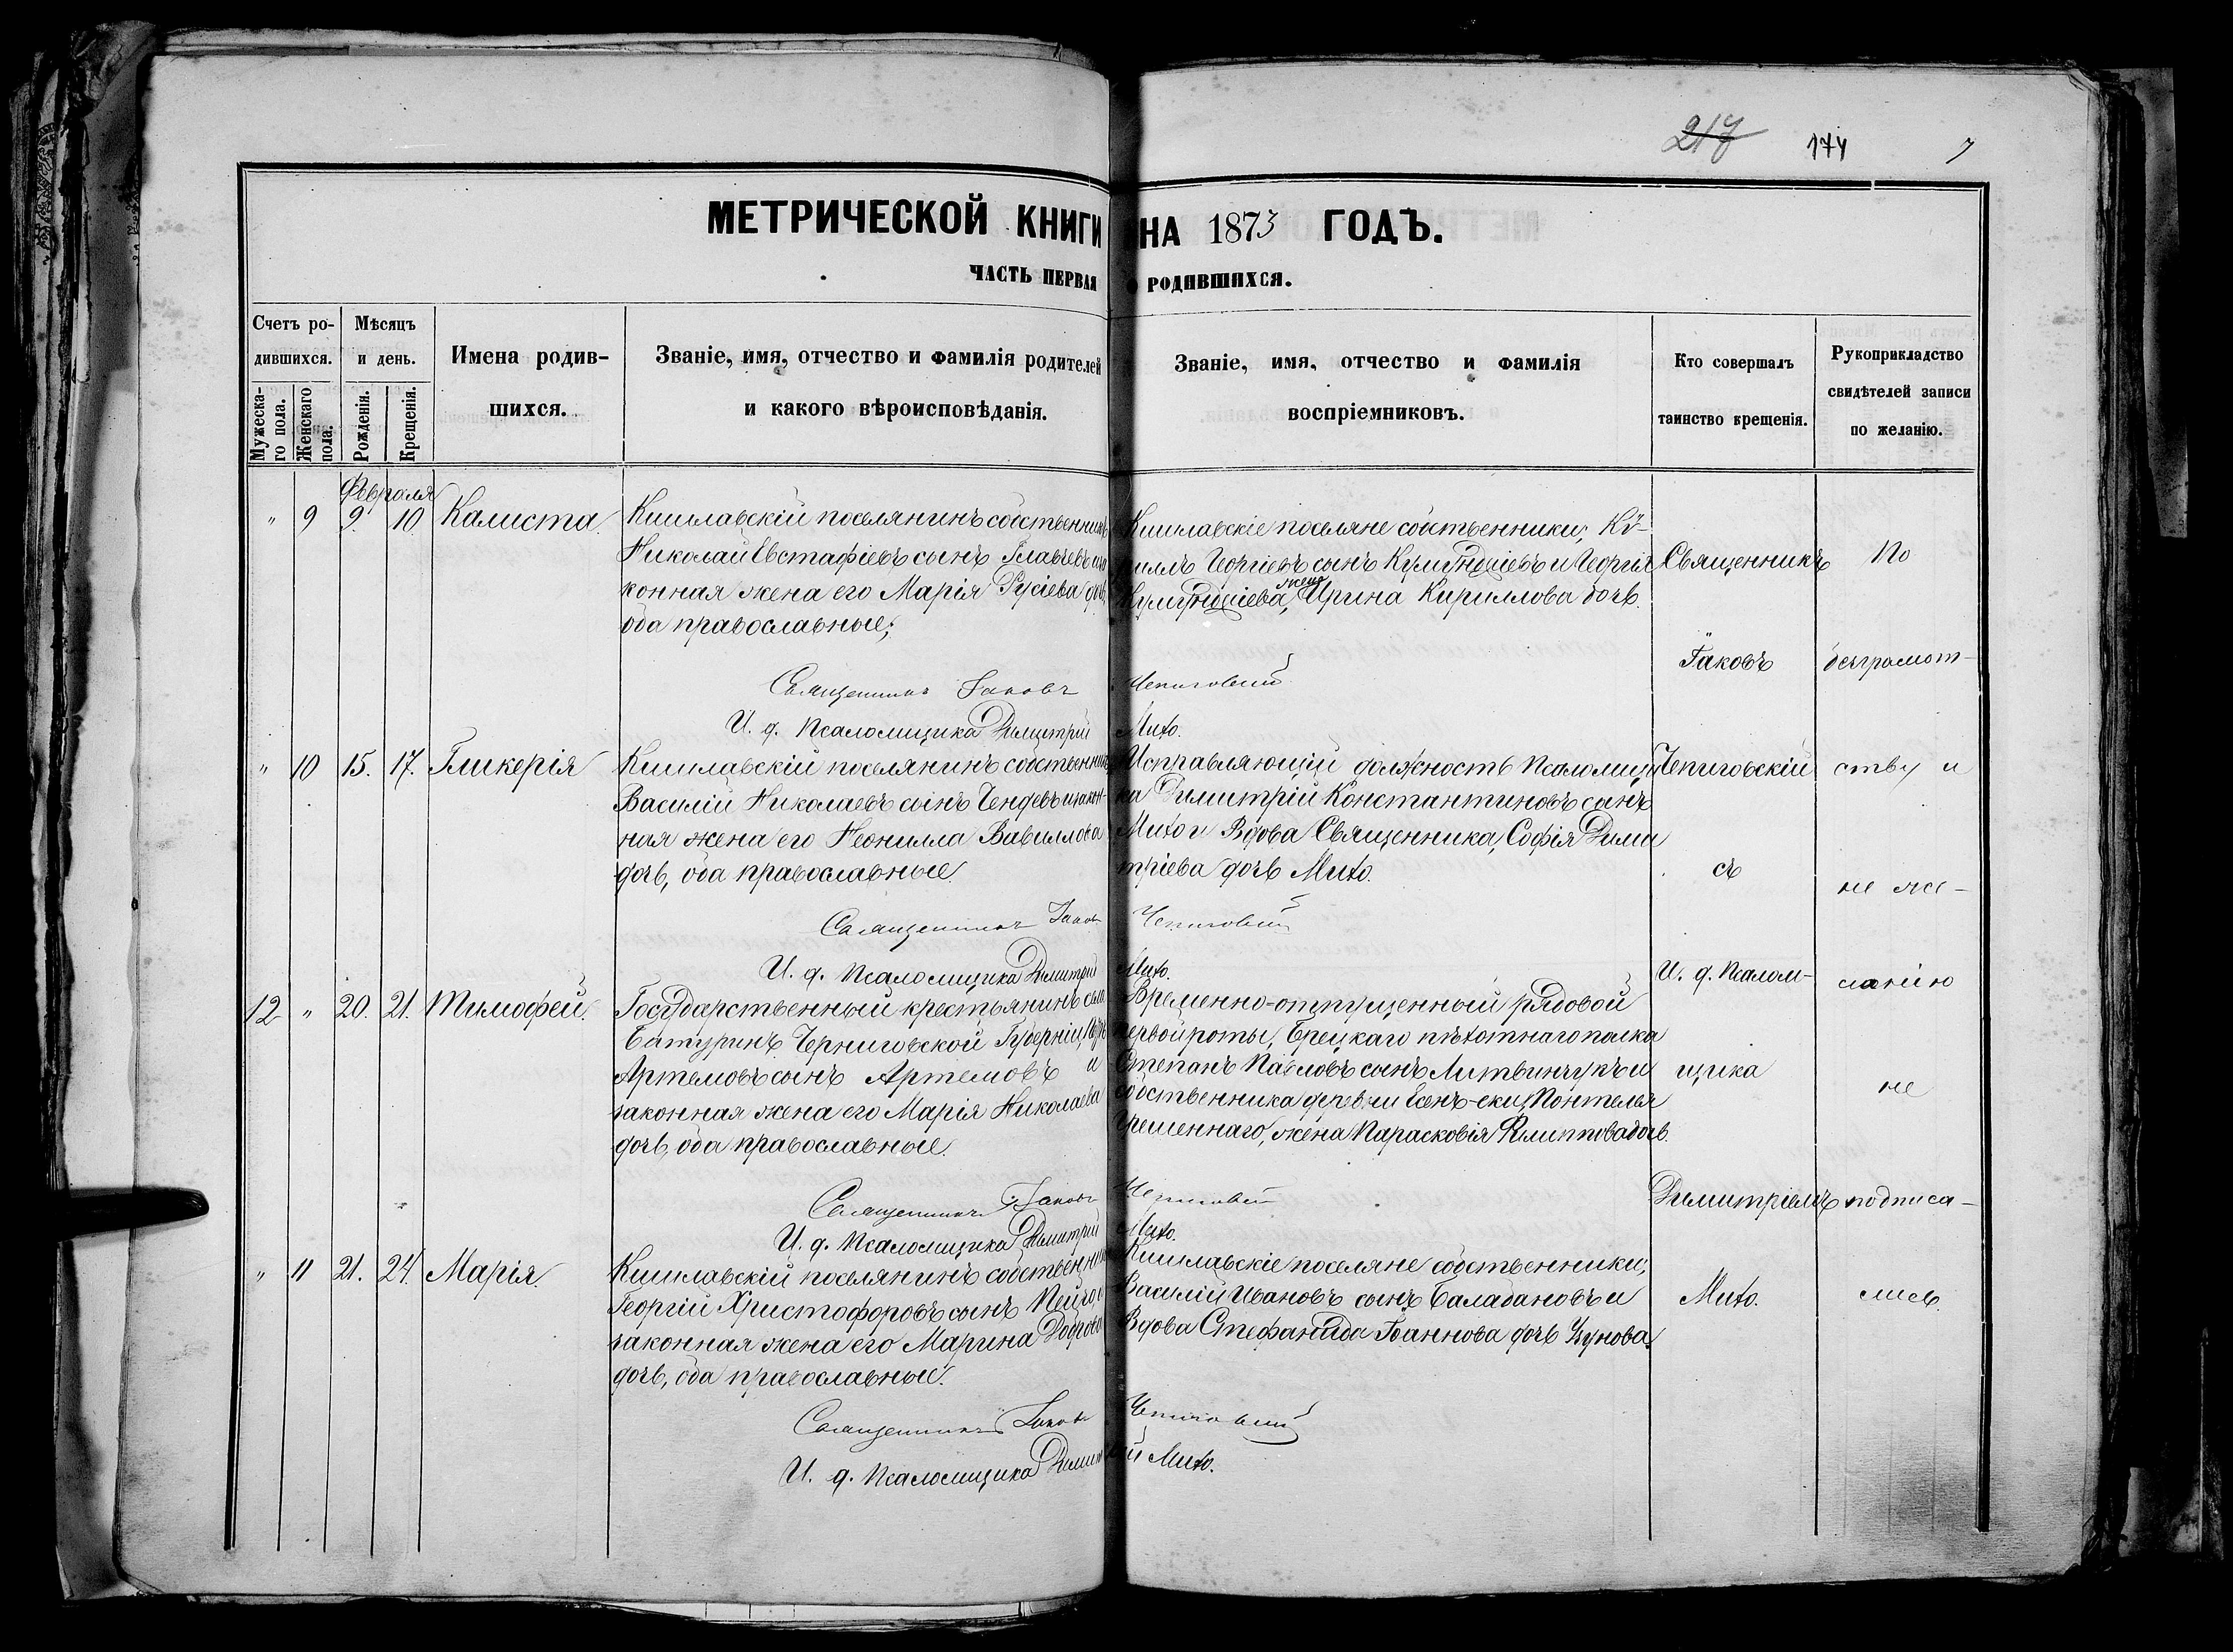 217 174 7
МЕТРИЧЕСКОЙ КНИГИ НА 1873 ГОДЪ.
ЧАСТЬ ПЕРВАЯ О РОДИВШИХСЯ.
Счетъ ро-
дившихся.
Мужеска-
го пола.
Женскаго
пола.
Мѣсяцъ
и день.
Рожденія.
Крещенія.
Имена родив-
шихся.
Званіе, имя, отчество и фамилія родителей
и какого вѣроисповѣданія.
Званіе, имя, отчество и фамилія
воспріемниковъ.
Кто совершалъ
таинство крещенія.
Рукоприкладство
свидѣтелей записи
по желанію.
Февраля
" 9 9. 10. Калиста.
Кишлавскій поселянинъ собственникъ
Николай Евстафіевъ сынъ
конная жена его Марія Гусіева
оба православные;
Священникъ Іаковъ Чепиговскій
И. д. Псаломщика Димитрій Михо.
Кишлавскіе поселяне собственники; Ки-
риллъ Георгіевъ сынъ и Георгія
жена
Ирина Кириллова дочь.
" 10 15. 17. Гликерія
Кишлавскій поселянинъ собственникъ
Василій Николаевъ сынъ Ченфевъ и закон-
ная жена его Неонилла Вавиллова
дочь, оба православные.
Священникъ Іаковъ Чепиговскій
И. д. Псаломщика Димитрій Михо.
Исправляющій должность Псаломщи-
ка Димитрій Константиновъ сынъ
Михо и Вдова Священника, Софія Дими
тріева дочь Михо.
12 " 20. 21. Тимофей.
Государственный крестьянинъ села
Батуринъ Черниговской Губерніи,
Артемовъ сынъ Артемовъ и
законная жена его Марія Николаева
дочь, оба православные.
Священникъ Іаковъ Чепиговскій
И. д. Псаломщика Димитрій Михо.
Временно-отпущенный рядовой
первой роты, пѣхотнаго полка
Степанъ Павловъ сынъ Литвинчукъ и
собственника деревни
жена Парасковія Филиппова дочь.
" 11 21. 24. Марія.
Кишлавскій поселянинъ собственникъ
Георгій Христофоровъ сынъ
законная жена его Марина
дочь, оба православные.
Священникъ Іаковъ Чепиговскій
И. д. Псаломщика Димитрій Михо.
Кишлавскіе поселяне собственники;
Василій Ивановъ сынъ Балабановъ и
Вдова Стефанида Іоаннова дочь Узунова.
Священникъ
Іаковъ
Чепиговскій
съ
И. д. Псалом-
щика
Димитріемъ
Михо.
По
безграмот-
ству и
не же-
ланію
не
подписа-
лись.